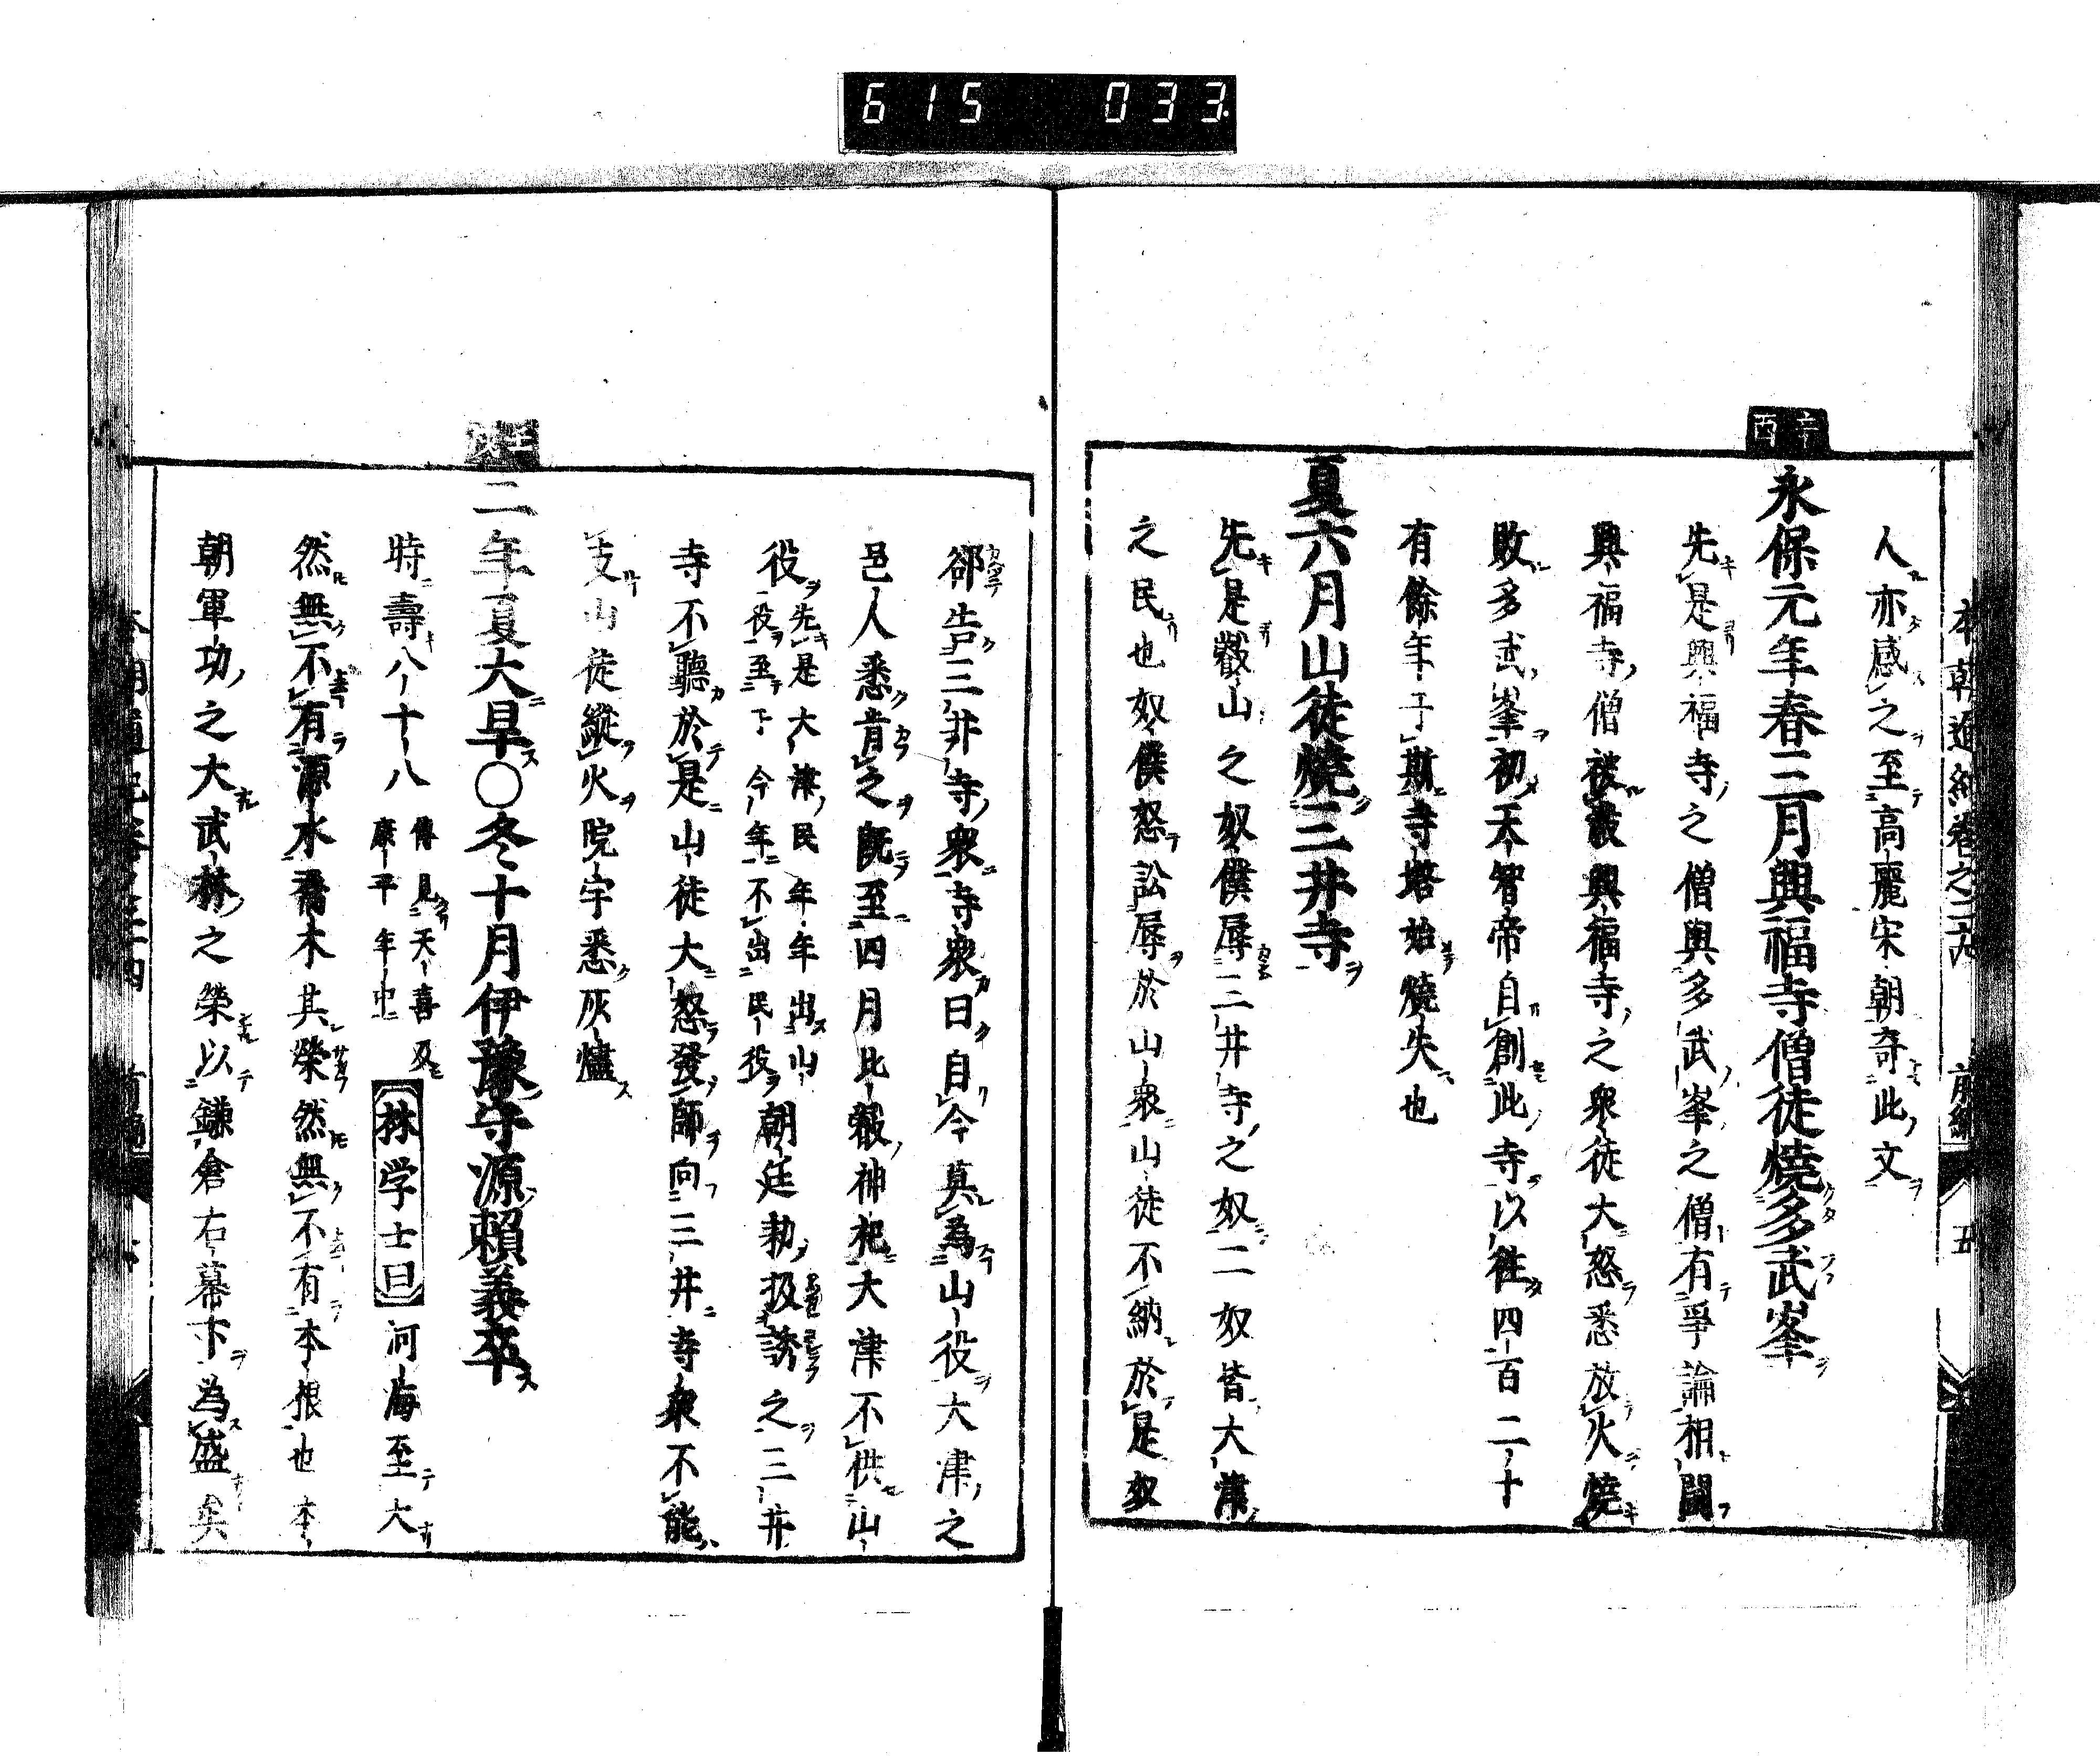 615 033
人亦感之至高麗宋朝奇此文
辛酉
永保元年春三月興福寺僧徒燒多武峯
先是興福寺之僧與多武峯之僧有爭論相鬪
興福寺僧被敗興福寺之衆徒大怒悉放火燒
敗多武峯初天智帝自創此寺以徃四百二十
有餘年于斯寺塔始燒失也
夏六月山徒燒三井寺
先是叡山之奴僕辱三井寺之奴二奴皆大津
之民也奴僕怒訟辱於山衆山徒不納於是奴
郤告三井寺衆寺衆曰自今莫為山役大津之
邑人悉肯之既至四月比叡神祀大津不供山
役
先是大津民年年出山
役至下今年不出民役
朝廷勅扱誘之三井
寺不聽於是山徒大怒發師向三井寺衆不能
支山徒縱火院宇悉灰燼
壬戌
二年夏大旱〇冬十月伊豫守源賴義卒
時壽八十八
傳見天喜及
康平年中
林学士曰
河海至大
然無不有源水喬木其榮然無不有本根也本
朝軍功之大武林之榮以鎌倉右幕下為盛矣